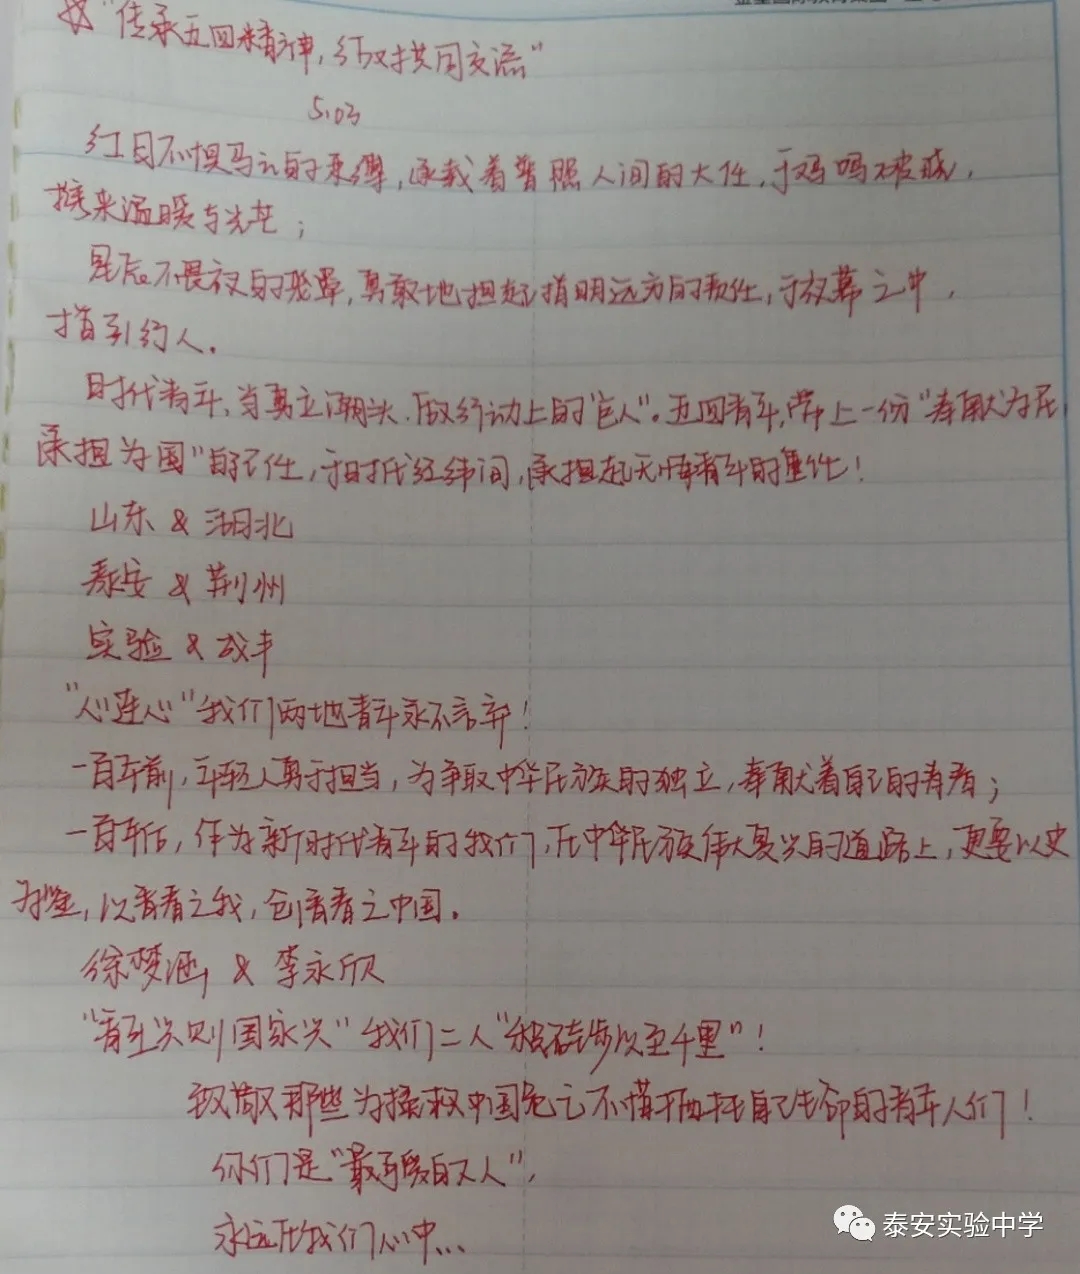 "传承五四精神,
5.03
红日不惧乌云的束缚,承载着普照人间的大任,于
携来温暖与光芒;
星辰不畏夜的笼罩,勇敢地担起指明远方的责任,于夜幕之中,
指引行人。
时代青年,当勇立潮头,做行动上的"巨人"。五四青年,带上一份"奉献为民,
承担为国"的责任,于时代经纬间,承担起无悔青年的重任!
山东 & 湖北
泰安 & 荆州
实验 & 成丰
"心连心"我们两地青年永不言弃!
一百年前,年轻人勇于担当,为争取中华民族的独立,奉献着自己的青春;
一百年后,作为新时代青年的我们,在中华民族伟大复兴的道路上,更要以史
为鉴,以青春之我,创青春之中国。
徐梦涵 & 李永欣
"青年兴则国家兴"我们二人"积硅步以至千里"!
致敬那些为拯救中国危亡不惜牺牲自己生命的青年人们!
你们是"最可爱的人",
永远在我们心中...
泰安实验中学